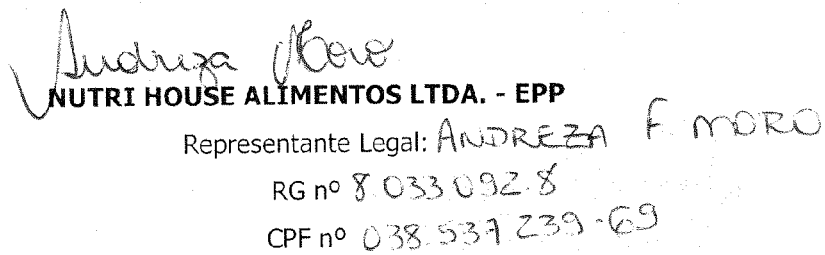 Andreza Moro
NUTRI HOUSE ALIMENTOS LTDA. - EPP
Representante Legal: ANDREZA F. MORO
RG nº 8.033.092.8
CPF nº 038.537.239-69